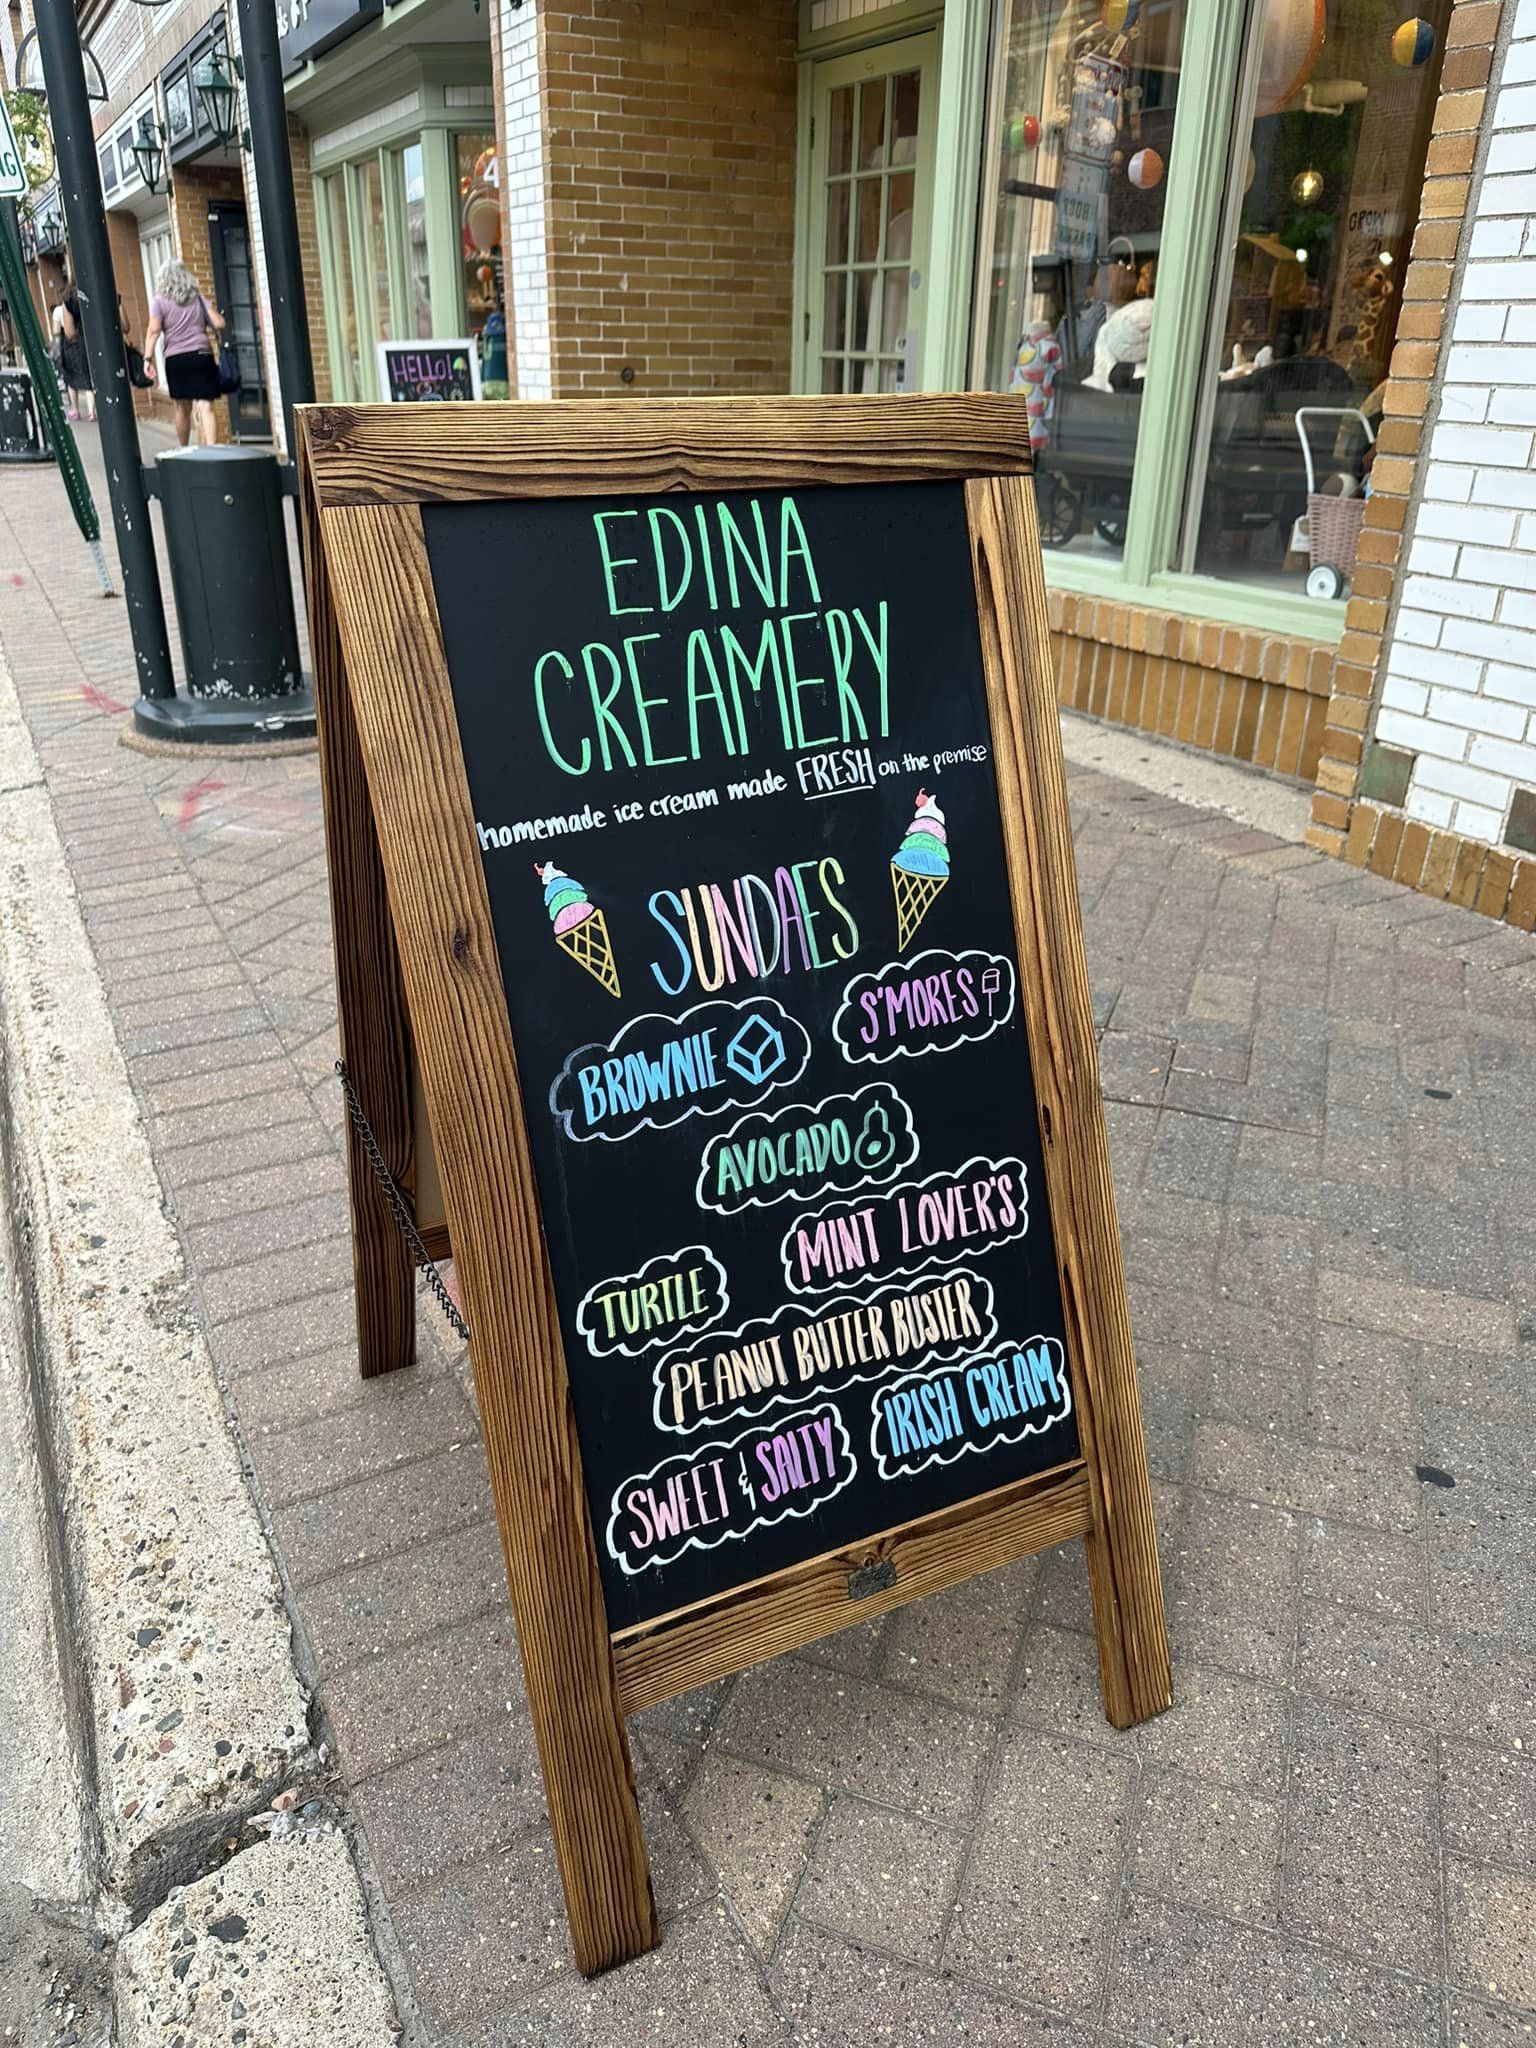 EDINA
CREAMERY
homemade ice cream made FRESH on the premise
SUNDAES
S'MORES
BROWNIE
AVOCADO
MINT LOVER'S
TURTLE
PEANUT BUTTER BUSTER
IRISH CREAM
SWEET & SALTY
HELLO!
GROW